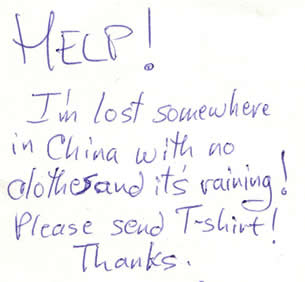 HELP!
I'm lost somewhere
in China with no
clothes and it's raining!
Please send T-shirt!
Thanks.